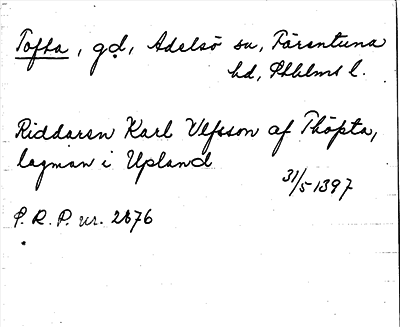 Tofta, gd, Adelsö sn, Färentuna
hd, Sthlms l.
Riddaren Karl Ulfsson af Thöpta,
lagman i Upland
31/5 1397
P. R. P. nr. 2876